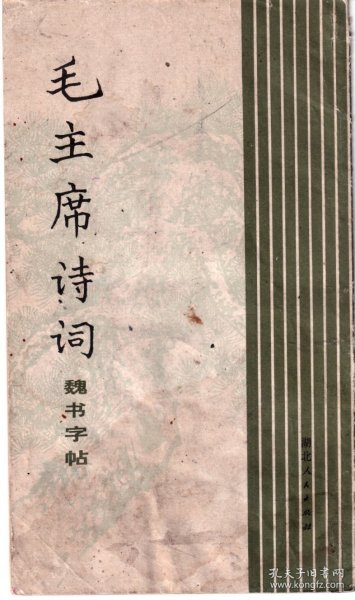 毛主席诗词
魏书字帖
湖北人民出版社
孔夫子旧书网
www.kongfz.com